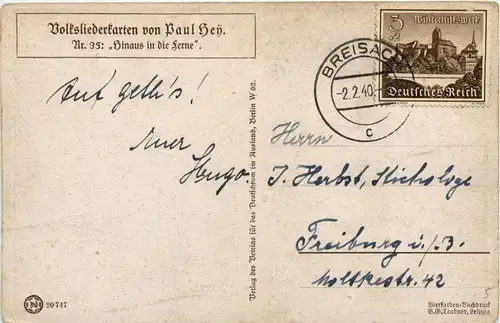 Volksliederkarten von Paul Hey.
Nr. 95: „Hinaus in die Ferne“.
3
Winterhilfswerk
Deutsches Reich
BREISACH
-2.2.40.
c
Auf geht's!
Euer
Hugo.
Herrn
J. Herbst, Stichologe
Freiburg i./B.
Moltkestr. 42
Verlag des Vereins für das Deutschtum im Ausland, Berlin W 62.
20747
Vierfarben-Buchdruck
B.G. Teubner, Leipzig
5